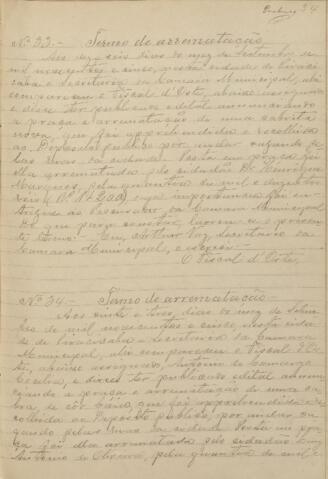 34
Nº 33. - Termo de arrematação.
Aos dez e seis dias do mez de Setembro de
mil novecentos e cinco, nesta cidade de Piraci-
caba e Secretaria da Camara Municipal, ahi
compareceu o Fiscal d'Este, abaixo assignado
e disse ter publicado edital annunciando
a praça e arrematação de uma cabrita
nova, que foi apprehendida e recolhida
ao Deposito publico por andar vagando pe-
las ruas da cidade. Posta em praça foi
ella arrematada pelo cidadão Henrique
Marques, pela quantia de mil e duzentos
reis, cuja importancia foi en-
tregue ao Procurador da Camara Municipal
Do que para constar lavrou-se o presen-
te termo. Eu, Arthur Vaz, Secretario da
Camara Municipal, o escrevi.
O Fiscal d'Este,
Nº 34. - Termo de arrematação.
Aos vinte e tres dias do mez de Setem-
bro de mil novecentos e cinco, nesta cida-
de de Piracicaba e Secretaria da Camara
Municipal, ahi compareceu o Fiscal d'Es-
te, abaixo assignado, de Camargo
e disse ter publicado edital annun-
ciando a praça e arrematação de uma ca-
bra, de côr baia, que foi apprehendida e re-
colhida ao Deposito publico, por andar va-
gando pelas ruas da cidade. Posta em pra-
ça foi ella arrematada pelo cidadão
Antonio de Oliveira, pela quantia de mil e